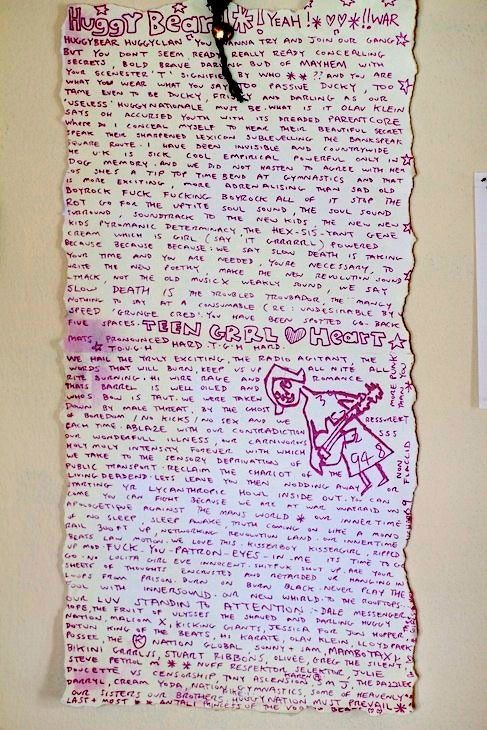 Huggy Bear!*! YEAH! *♡♡*!! WAR
HUGGYBEAR HUGGYCLAN "YOU WANNA TRY AND JOIN OUR GANG
BUT YOU DON'T SEEM READY REALLY READY CONCEALLING
SECRETS, BOLD BRAVE DARLING BUD OF MAYHEM WITH
YOUR SCENESTER 'T' SIGNIFIED BY WHO ** ?? AND YOU ARE
WHAT YOU WEAR WHAT YOU SAY TOO PASSIVE DUCKY, TOO
TAME EVEN TO BE DUCKY, FRISKY AND DARLING AS OUR
'USELESS' HUGGYNATIONALE MUST BE. WHAT IS IT OLAV KLEIN
SAYS OH ACCURSED YOUTH WITH ITS DREADED PARENTCORE
WHERE DO I CONCEAL MYSELF TO HEAR THEIR BEAUTIFUL SECRET
SPEAK THEIR SHARPENED LEXICON SUBLEVELLING THE BANKSPEAK
SQUARE ROUTE. I HAVE BEEN INVISIBLE AND COUNTRYWIDE
THE UK IS SICK COOL EMPIRICAL POWERFUL ONLY IN
DOG MEMORY. AND WE DID NOT HASTEN TO AGREE WITH HER
SHE'S A TIP TOP TIME BEND AT GYMNASTICS AND THAT
IS MORE EXCITING, MORE ADRENALISING THAN SAD OLD
BOYROCK FUCK FUCKING BOYROCK ALL OF IT STOP THE
ROT GO FOR THE UPTITE SOUL SOUND, THE SOUL SOUND
SURROUND, SOUNDTRACK TO THE NEW KIDS THE NEW NEW
KIDS PYROMANIC DETERMINACY, THE HEX-SIS-TANT GENE
CREAM WHICH IS GIRL (SAY IT GRRRRRL) POWERED
BECAUSE BECAUSE BECAUSE: WE SAY SLOW DEATH IS TAKING
YOUR TIME AND YOU ARE NEEDED, YOU'RE NECESSARY, TO
WRITE THE NEW POETRY, MAKE THE NEW REVOLUTION SOUND
TRACK, NOT THE OLD MUSICX WEAKLY SOUND, WE SAY
SLOW DEATH IS THE TROUBLED TROUBADOR, THE MANGY
NOTHING TO SAY AT A CONSUMABLE (RE: UNDESIRABLE BY
SPEED 'GRUNGE CRED'. YOU HAVE BEEN SPOTTED GO BACK
FIVE SPACES. TEEN GRRL ♡ Heart ☆
THATS PRONOUNCED HARD T.G.H HARD
☆ T.O.U.G.H
WE HAIL THE TRULY EXCITING, THE RADIO AGITANT, THE
WORDS THAT WILL BURN, KEEP US UP ALL NITE ALL
RITE BURNING. HI WIRE RAGE AND ROMANCE
THATS BARREL IS WELL OILED AND
WHO'S BOW IS TAUT. WE WERE TAKEN
DOWN BY MALE THREAT, BY THE GHOST
OF BOREDOM / NO KICKS / NO SEX AND WE RESSUREKT
EACH TIME. ABLAZE WITH OUR CONTRADICTION SSS
OUR WONDERFULL ILLNESS, OUR CARNIVOROUS
HOLY MOLY INTENSITY FOREVER WITH WHICH
WE TAKE TO THE SENSORY DEPRIVATION OF
PUBLIC TRANSPORT. RECLAIM THE CHARIOT OF THE
LIVING DEADEND. LETS LEAVE YOU THEN NODDING AWAY OR
STARTING YR LYCANTHROPIC HOWL INSIDE OUT. YOU CAN
COME YOU CAN FIGHT BECAUSE WE ARE AT WAR UNAFRAID UN
APOLOGETIQUE AGAINST THE MANS WORLD * OUR INNERTIME
OF NO SLEEP, SLEEP AWAKE, TRUTH COMING ON LIKE A MONO
RAIL, 300FT UP NETWORKING REVOLUTION LAND. OUR INNERTIME
BEATS LAW MOTION. WE LOVE THIS. KISSERBOY KISSERGIRL, RIPPED
UP MOD FUCK. YOU-PATRON-EYES-IN.ME ITS TIME TO
GO. NO LOLITA GIRL EVE INNOCENT. SHITFUK SHUT UP. ARE YOUR
SHEETS OF THOUGHTS ENCRUSTED AND RETARDED UR HANGING IN
LOOPS FROM PRISON. BURN ON BURN BLACK. NEVER PLAY THE
FOOL WITH INNERSOUND. OUR NEW WHIRLD TO THE ROOFTOPS.
OUR LUV STANDIN TO ATTENTION:- DALE MESSENGER,
JOPE, THE FRUIT OF ULYSSES THE SHAVED AND DARLING HUGGY
NATION, MALCOLM X, KICKING GIANTS, JESSICA FOR JON HOPPER,
PUTTIN KING OF THE BEATS, HI KARATE, OLAV KLEIN, LLOYD PARK
POSSEE, THE ♡ NATION GLOBAL. SONNY + SAM, MAMBOTAXI,
BIKINI GRRRLSS, STUART RIBBONS, OLIVEE, GREG THE SILENT,
STEVE PETROL ** NUFF RESPEKTOR, SELEKTOR, JULIE
DOUCETTE VS CENSORSHIP, TONY ASCENSION, KAREN S M J, THE DAZZLER
DARRYL, CREAM YODA, NATION GYMNASTICS, SOME OF HEAVENLY
OUR SISTERS OUR BROTHERS, HUGGYNATION MUST PREVAIL
LAST + MOST ** ANTALI PRINCESS OF THE VOODOO BEAT
MORE PUNK
THAN
NON
FLACCID